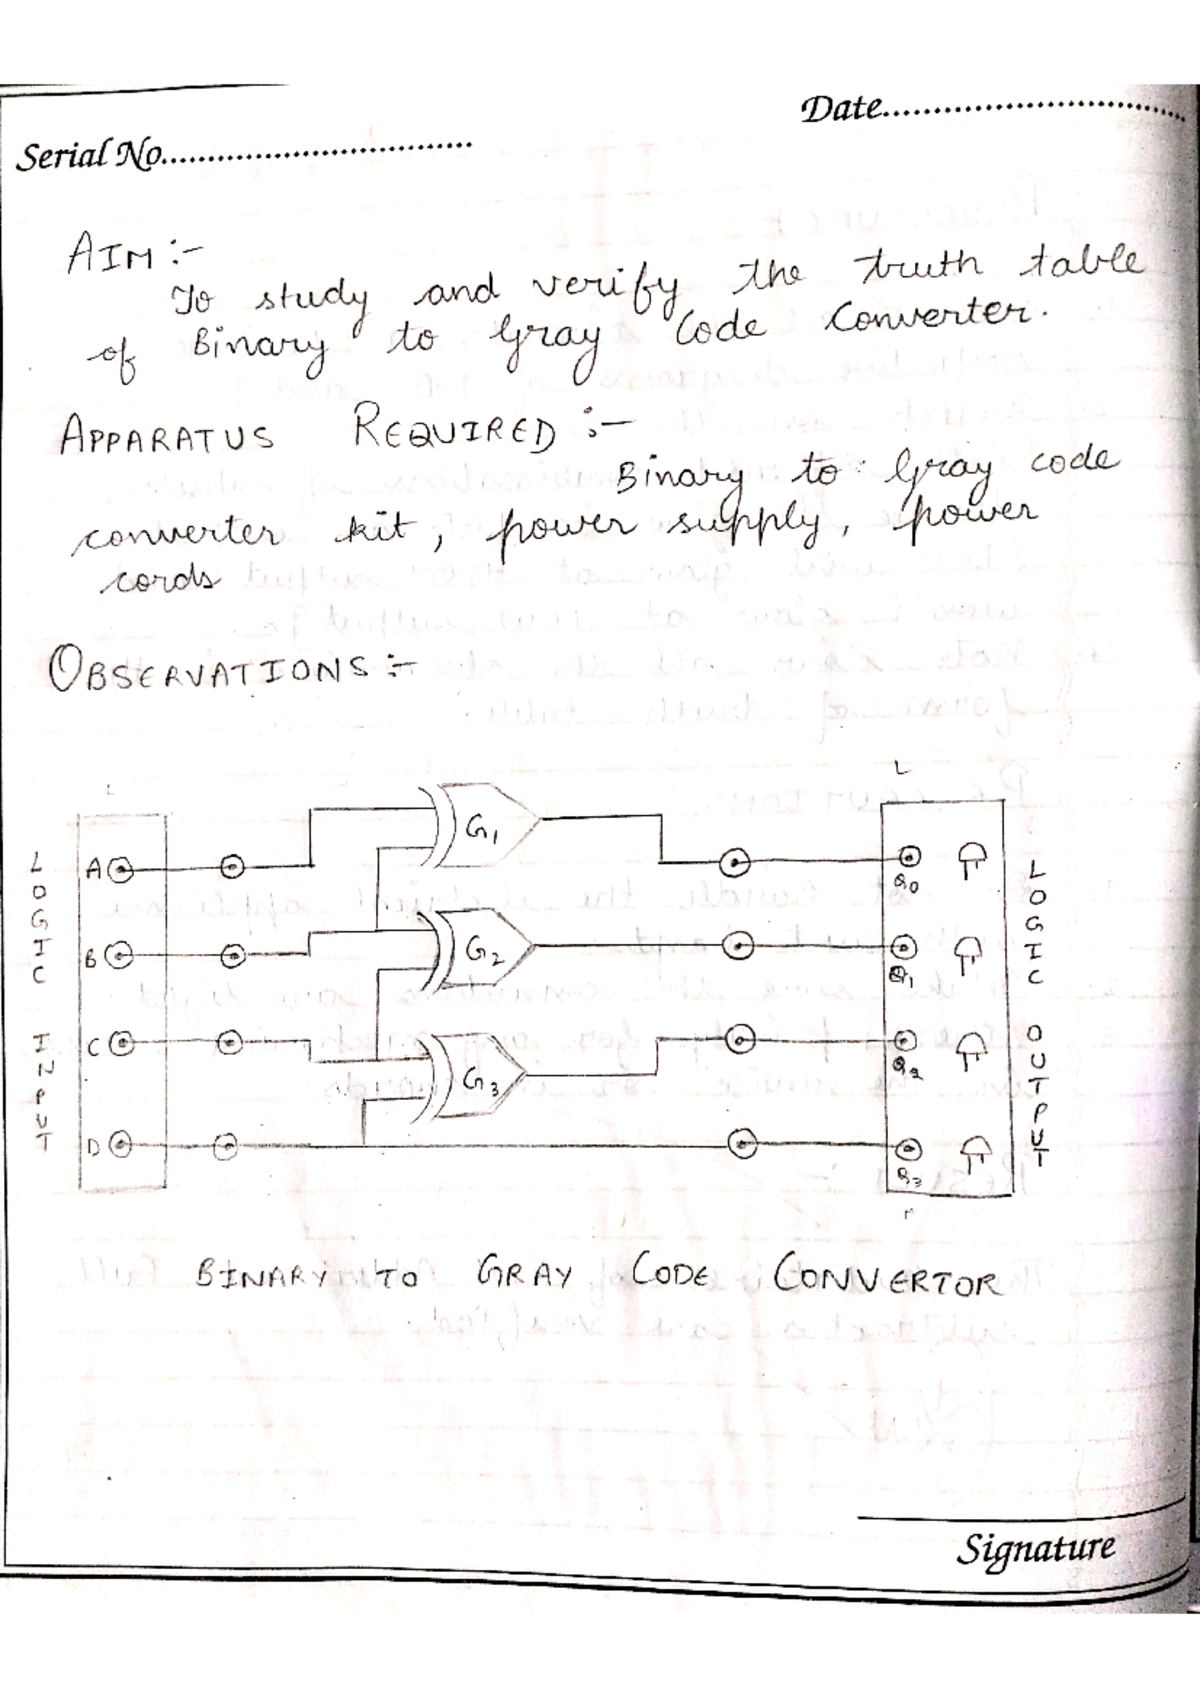 Date
Serial No.
AIM :-
To study and verify the truth table
of Binary to Gray Code Converter.
APPARATUS REQUIRED :-
Binary to Gray code
converter kit, power supply, power
cords
OBSERVATIONS :-
L
LOGIC INPUT
A
B
C
D
G1
G2
G3
Q0
Q1
Q2
Q3
LOGIC OUTPUT
BINARY TO GRAY CODE CONVERTOR
Signature